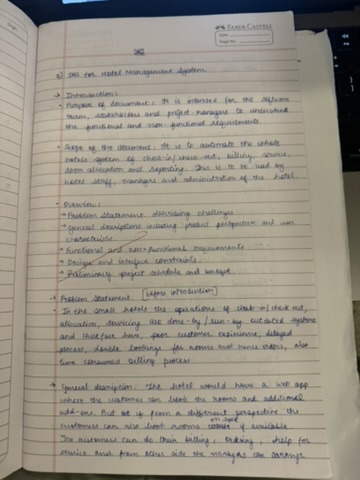 FABER-CASTELL
Date
Page No.
2) SRS for Hotel Management System
→ Introduction:
• Purpose of document: It is intended for the software
team, stakeholders and project managers to understand
the functional and non-functional requirements
• Scope of the document: It is to automate the whole
hotels system of check-in/check-out, billing, service,
room allocation and reporting. This is to be used by
hotel staff, managers and administration of the hotel.
• Overview:
→ Problem Statement describing challenges
→ General descriptions including product perspective and user
characteristic
→ Functional and non-functional requirements
→ Design and interface constraints
→ Preliminary project schedule and budget
→ Problem Statement [before introduction]
• In the small hotels the operations of check-in/check out,
allocation, servicing are done by / run by outdated systems
and therefore have, poor customer experience, delayed
process, double bookings for rooms and more errors, also
time consumed billing process
→ General description: The hotel would have a web app
where the customer can book the rooms and additional
add-ons. But as if from a different perspective the
customers can also book rooms on spot if available
The customers can do their billing, ordering, help for
service and from other side the managers can arrange